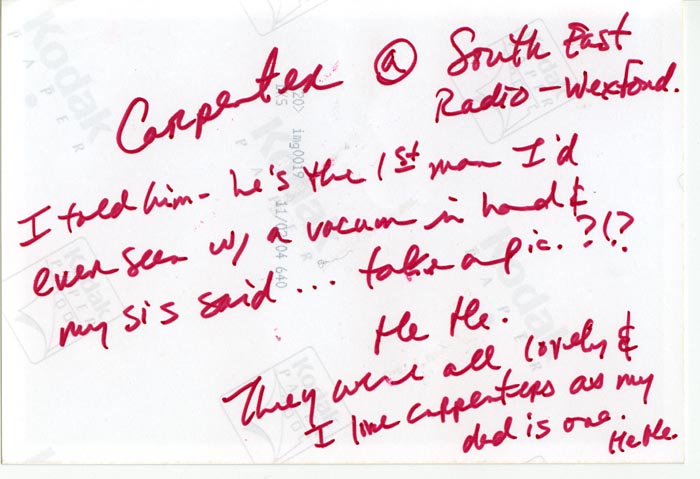 Carpenter @ South East
Radio - Wexford.
I told him - he's the 1st man I'd
ever seen w/ a vacum in hand &
my sis said ... take a pic. ?!?
He He.
They were all lovely &
I like carpenters as my
dad is one.
HeHe.
Kodak
PAPER
Kodak
PAPER
img0019
11/02/04 640